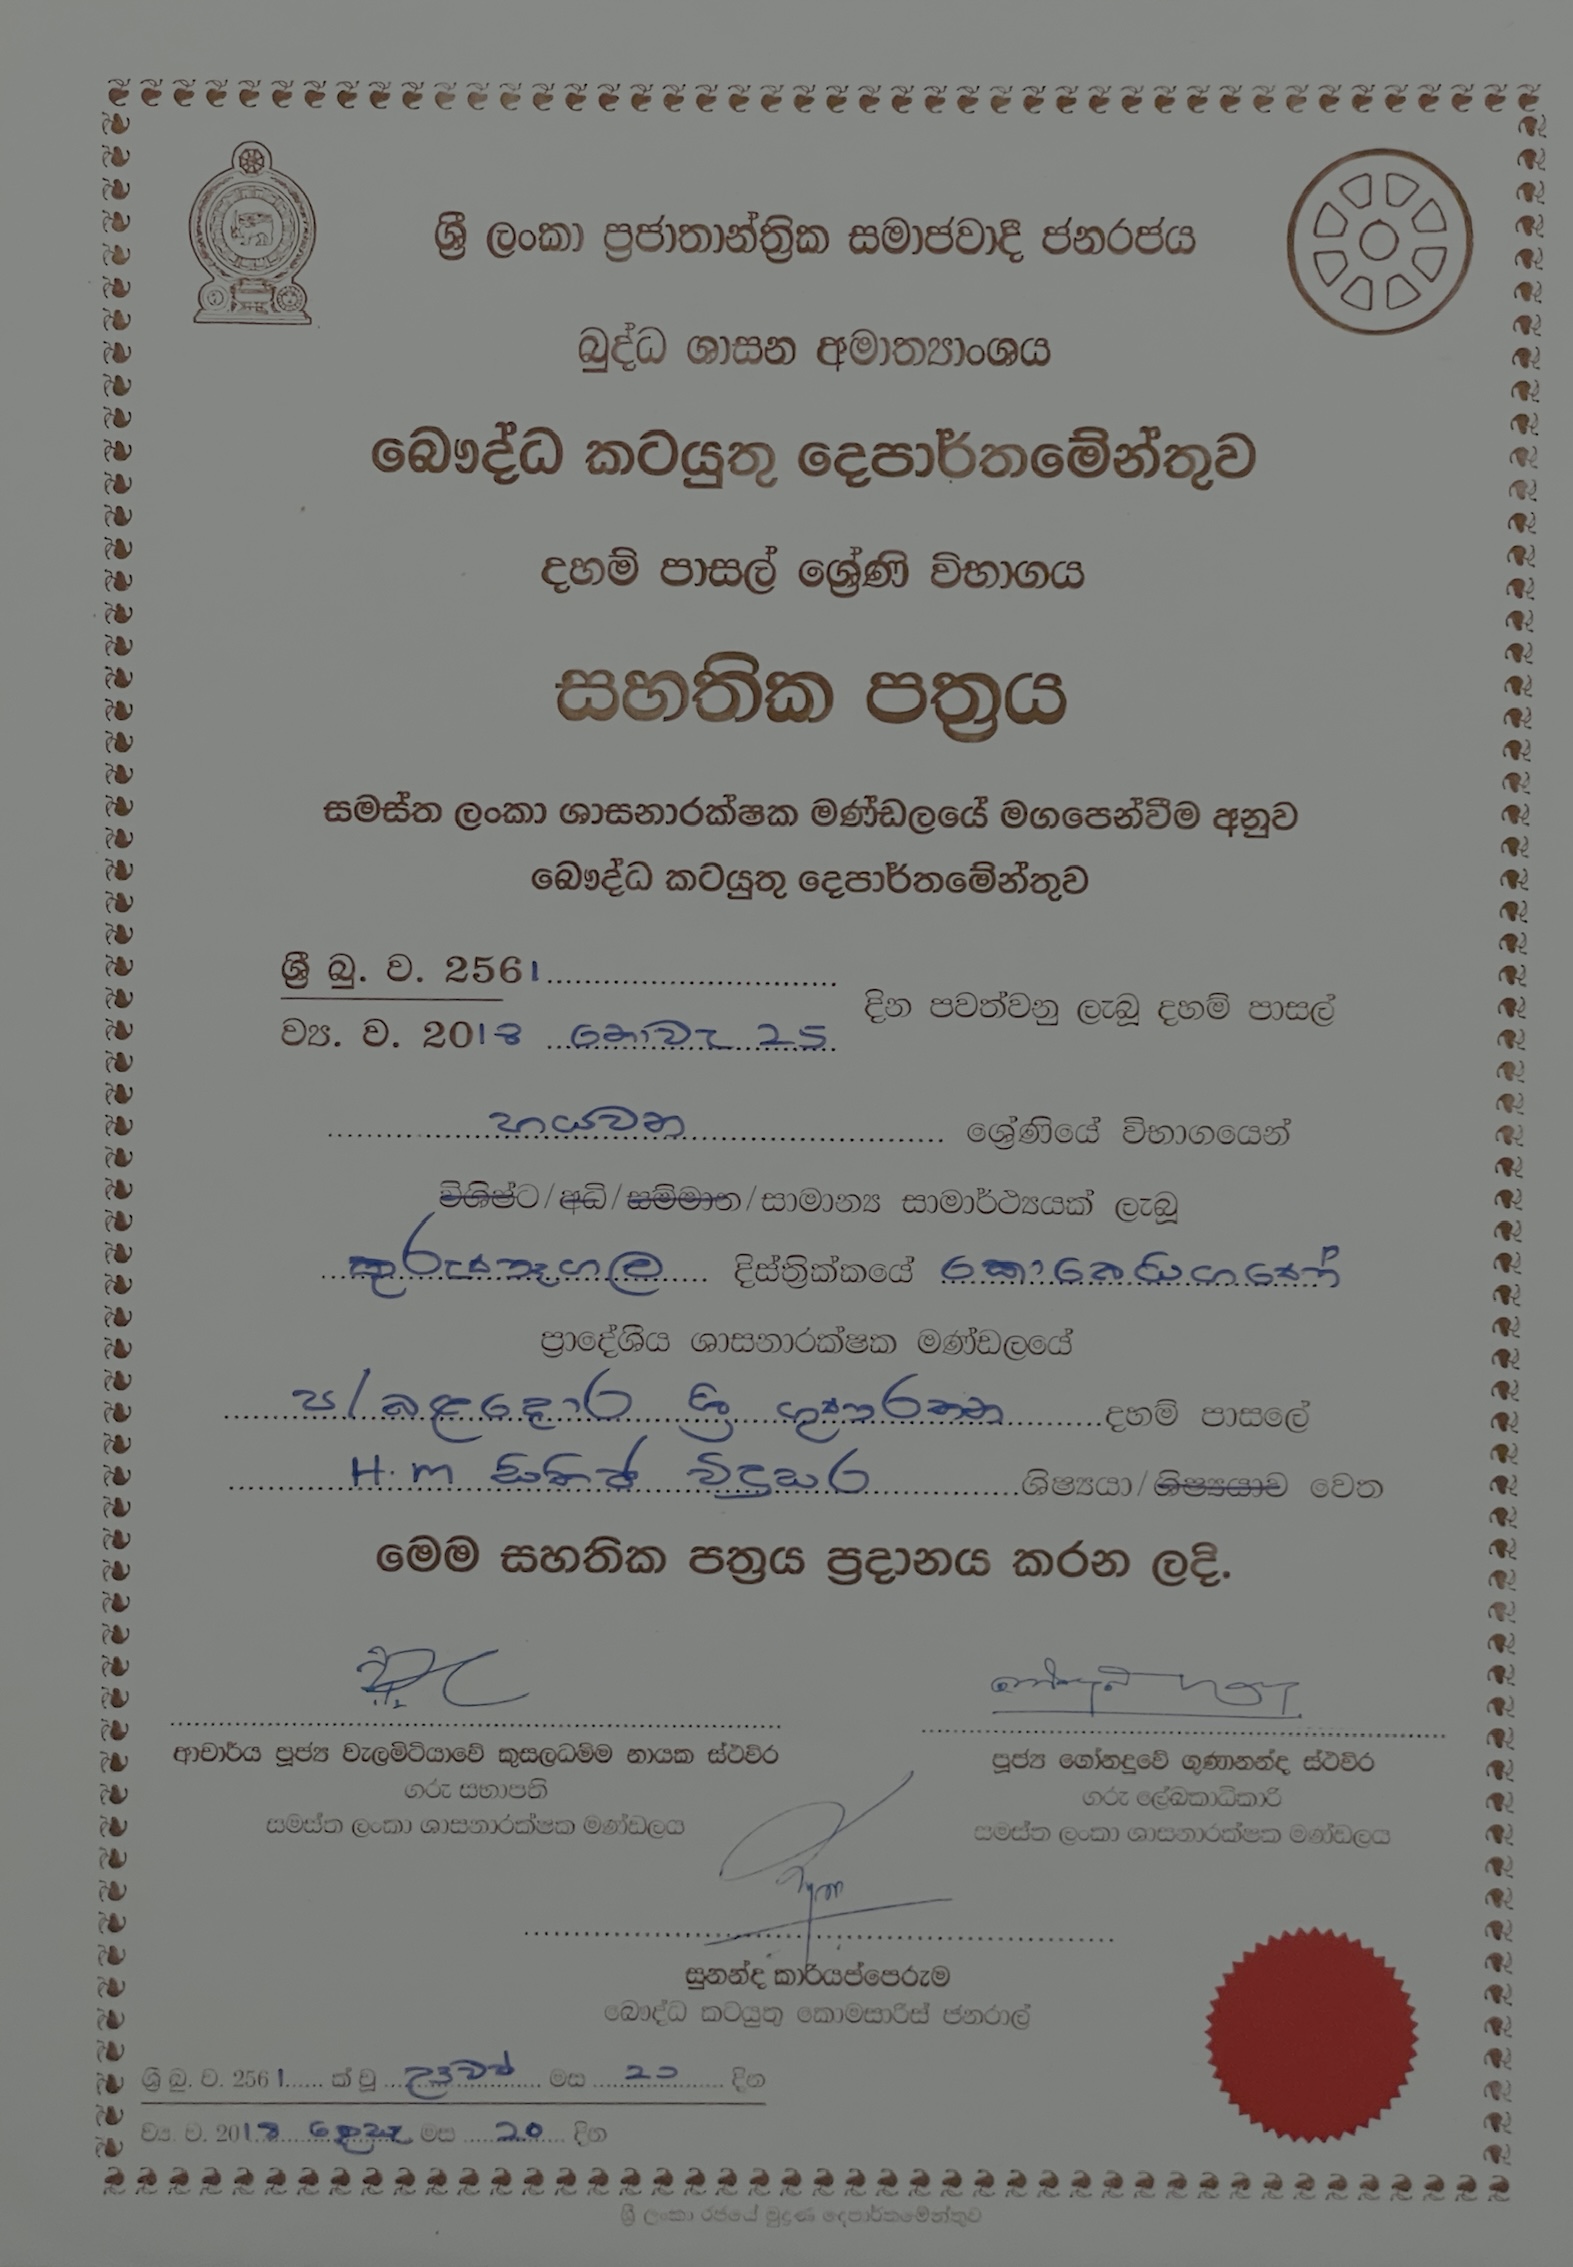 ශ්‍රී ලංකා ප්‍රජාතාන්ත්‍රික සමාජවාදී ජනරජය
බුද්ධ ශාසන අමාත්‍යාංශය
බෞද්ධ කටයුතු දෙපාර්තමේන්තුව
දහම් පාසල් ශ්‍රේණි විභාගය
සහතික පත්‍රය
සමස්ත ලංකා ශාසනාරක්ෂක මණ්ඩලයේ මගපෙන්වීම අනුව
බෞද්ධ කටයුතු දෙපාර්තමේන්තුව
ශ්‍රී බු. ව. 2561
ව්‍ය. ව. 2018 නොවැ 25 දින පවත්වනු ලැබූ දහම් පාසල්
හයවන ශ්‍රේණියේ විභාගයෙන්
විශිෂ්ට/අධි/සම්මාන/සාමාන්‍ය සාමාර්ථ්‍යයක් ලැබූ
කුරුණෑගල දිස්ත්‍රික්කයේ
ප්‍රාදේශීය ශාසනාරක්ෂක මණ්ඩලයේ
ප/බළදොර ශ්‍රී දහම් පාසලේ
H.M සිතිජ විදුසර ශිෂ්‍යයා/ශිෂ්‍යයාව වෙත
මෙම සහතික පත්‍රය ප්‍රදානය කරන ලදි.
ආචාර්ය පූජ්‍ය වැලමිටියාවේ කුසලධම්ම නායක ස්ථවිර
ගරු සභාපති
සමස්ත ලංකා ශාසනාරක්ෂක මණ්ඩලය
පූජ්‍ය ගෝනදූවේ ගුණානන්ද ස්ථවිර
ගරු ලේඛකාධිකාරි
සමස්ත ලංකා ශාසනාරක්ෂක මණ්ඩලය
සුනන්ද කාරියප්පෙරුම
බෞද්ධ කටයුතු කොමසාරිස් ජනරාල්
ශ්‍රී බු. ව. 2561 ක් වූ උඳුවප් මස 20 දින
ව්‍ය. ව. 2018 දෙසැ මස 20 දින
ශ්‍රී ලංකා රජයේ මුද්‍රණ දෙපාර්තමේන්තුව